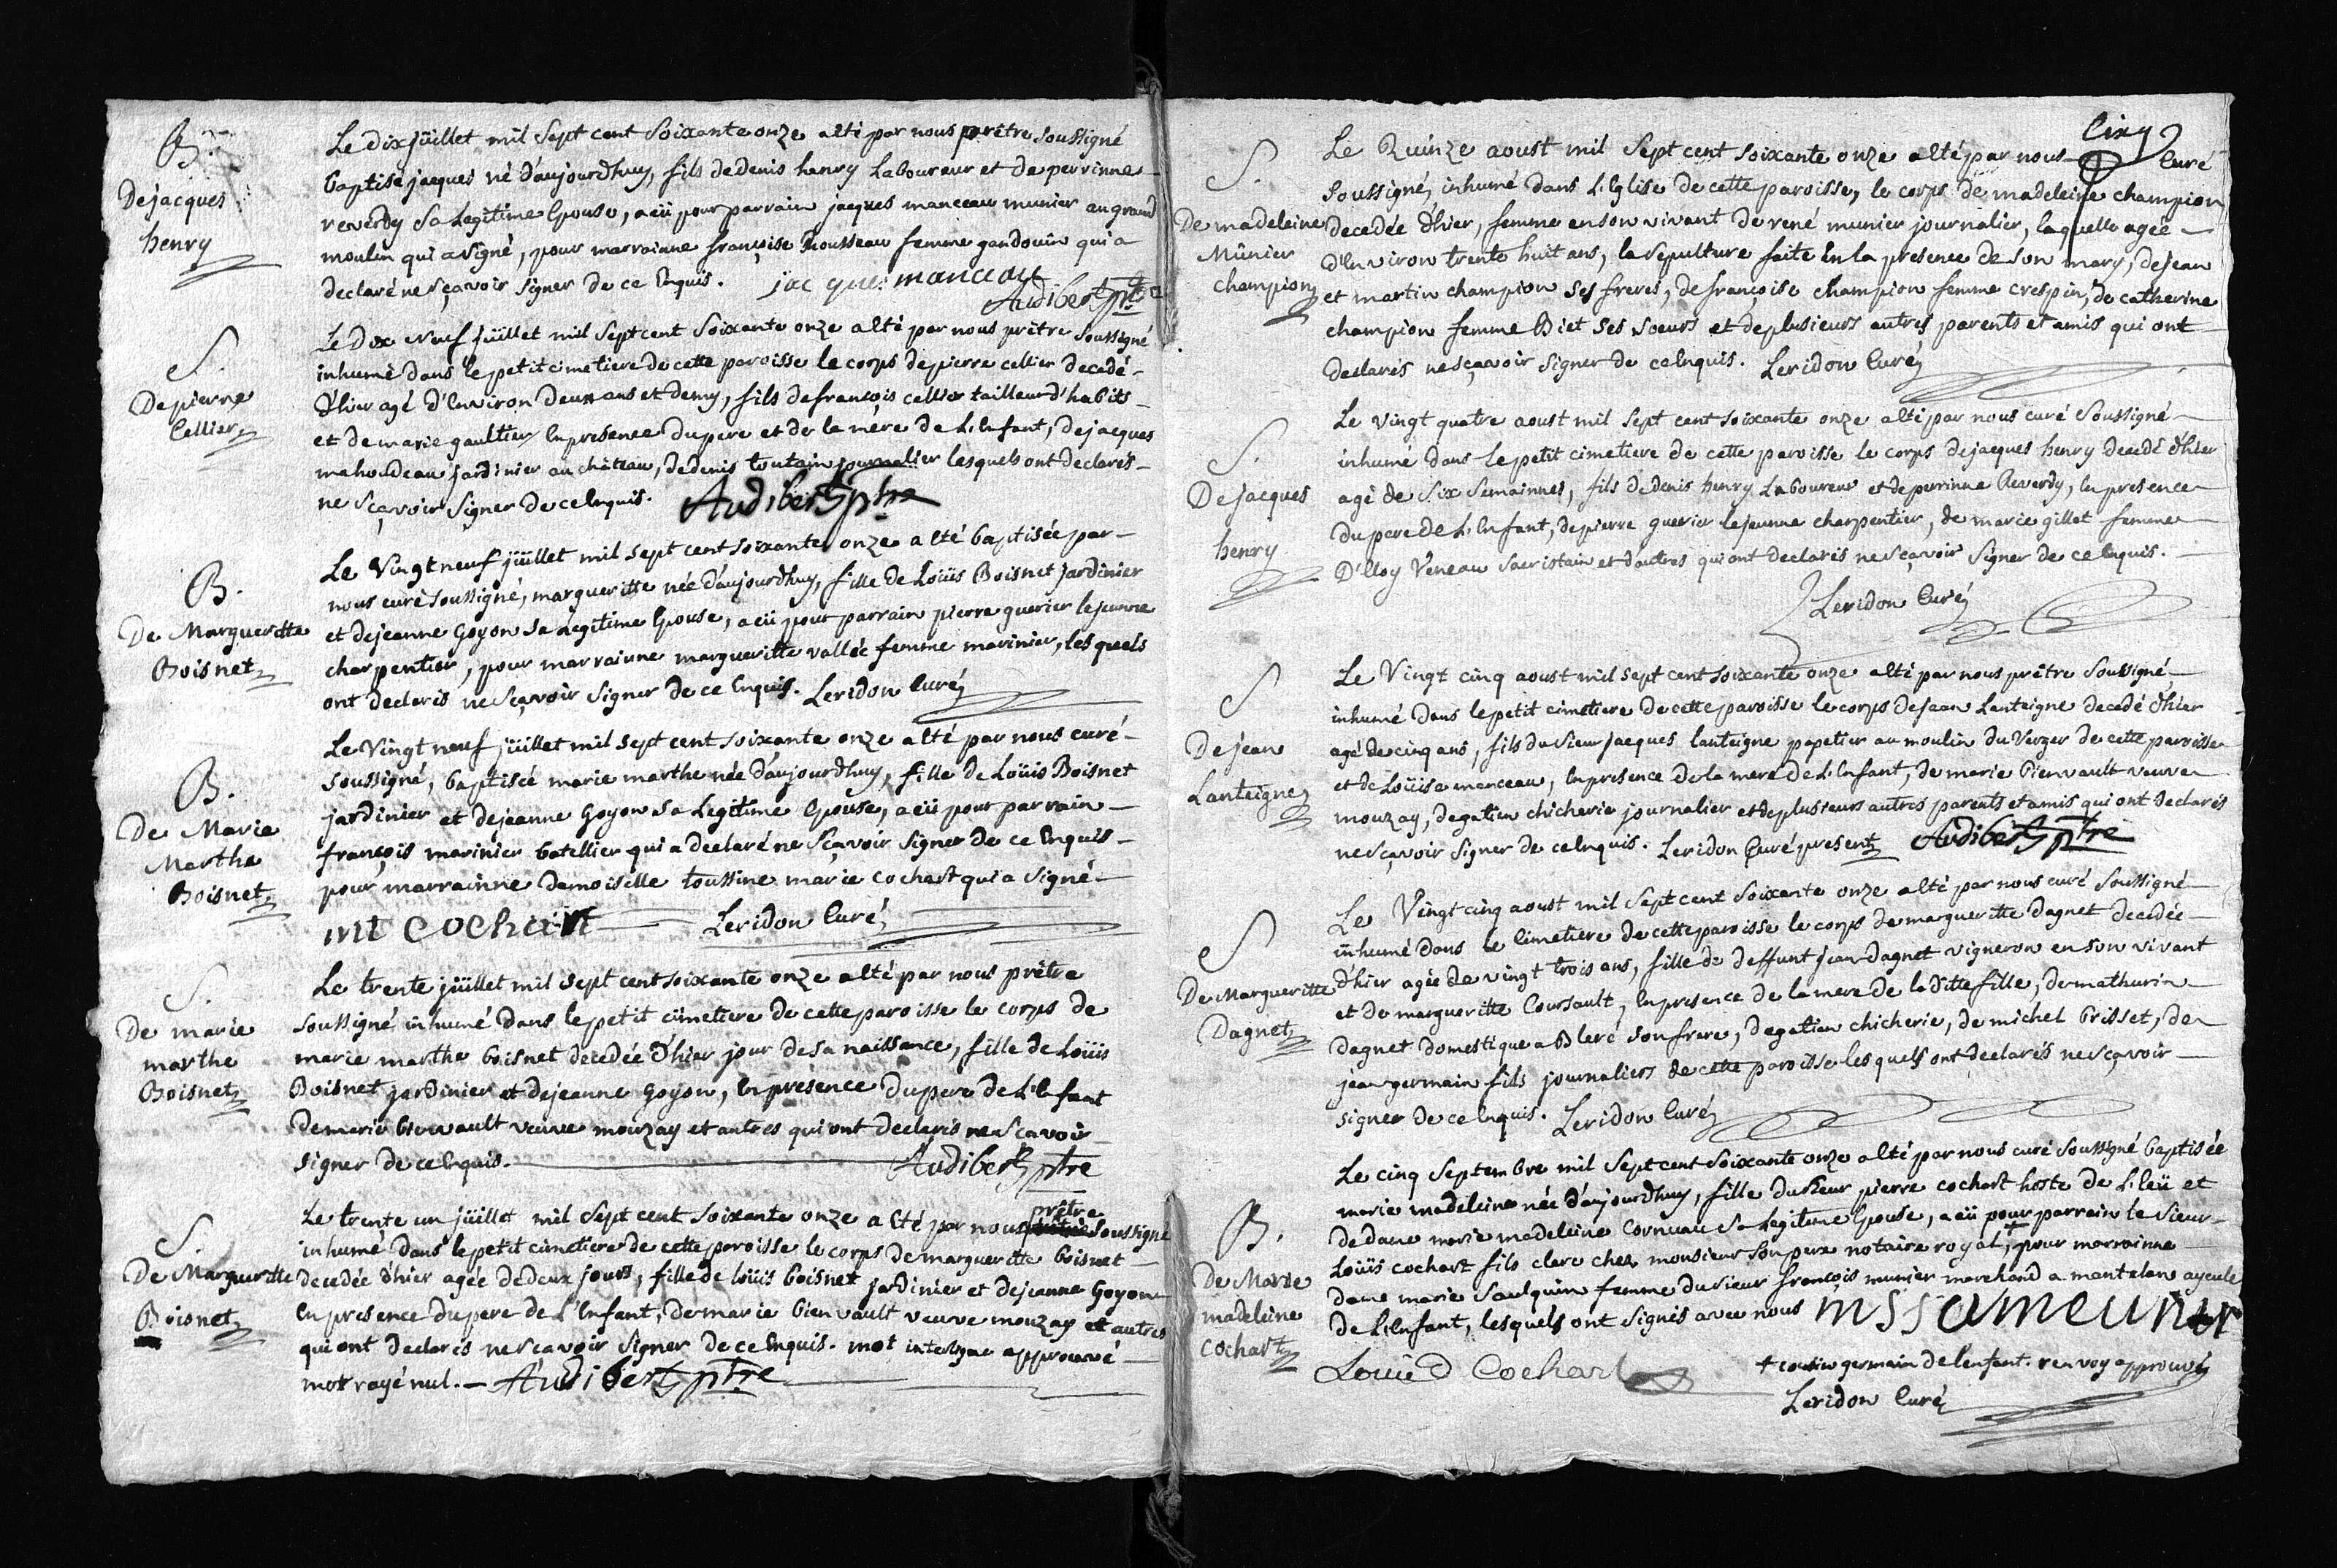 B.
De jacques
henry
Le dix jüillet mil Sept cent Soixante onze a été par nous prêtre soussigné
baptisé jacques né d'aujourdhuy, fils de denis henry Laboureur et de perrinne
reverdy Sa Legitime Epouse, a eü pour parrain jacques manceau munier au grand
moulin qui a signé, pour marrainne françoise housseau femme gandouin qui a
declaré ne sçavoir signer de ce Enquis. jacques manceau
Audibert ptre
S.
De pierre
Cellier
Le dix neuf jüillet mil Sept cent Soixante onze a été par nous prêtre Soussigné
inhumé dans le petit cimetiere de cette paroisse le corps de pierre cellier decedé
d'hier agé d'Environ deux ans et demy, fils de françois cellier tailleur d'habits
et de marie gaultier En presence du pere et de la mere de L'Enfant, de jacques
mahoudeau jardinier au château, de denis toutain journalier lesquels ont declarés
ne sçavoir signer de ce Enquis. Audibert ptre
B.
De Margueritte
Boisnet
Le Vingt neuf jüillet mil sept cent soixante onze a été baptisée par
nous curé soussigné, margueritte née d'aujourdhuy, fille de Loüis Boisnet jardinier
et de jeanne Goyon sa Legitime Epouse, a eü pour parrain pierre guerier le jeunne
charpentier, pour marrainne margueritte vallée femme marinier, lesquels
ont declarés ne sçavoir signer de ce Enquis. Leridon Curé
B.
De Marie
Marthe
Boisnet
Le Vingt neuf jüillet mil sept cent soixante onze a été par nous curé
soussigné, baptisée marie marthe née d'aujourdhuy, fille de Loüis Boisnet
jardinier et de jeanne Goyon sa Legitime Epouse, a eü pour parrain
françois marinier batellier qui a declaré ne sçavoir signer de ce Enquis
pour marrainne demoiselle toussine marie cochart qui a signé
mt cochart Leridon Curé
S.
De marie
marthe
Boisnet
Le trente jüillet mil sept cent soixante onze a été par nous prêtre
soussigné inhumé dans le petit cimetiere de cette paroisse le corps de
marie marthe boisnet decedée d'hier jour de sa naissance, fille de Loüis
Boisnet jardinier et de jeanne goyon, En presence du pere de L'Enfant
de marie bienvault veuve mouzay et autres qui ont declarés ne sçavoir
signer de ce Enquis. Audibert ptre
S.
De Margueritte
Boisnet
Le trente un jüillet mil Sept cent Soixante onze a été par nous prêtre soussigné
inhumé dans le petit cimetiere de cette paroisse le corps de margueritte boisnet
decedée d'hier agée de deux jours, fille de loüis boisnet jardinier et de jeanne Goyon
En presence du pere de L'Enfant, de marie bienvault veuve mouzay et autres
qui ont declarés ne sçavoir signer de ce Enquis. mot interligne approuvé
mot rayé nul. Audibert ptre
Cinq
S.
De madeleine
Münier
champion
Le Quinze aoust mil Sept cent soixante onze a été par nous Curé
Soussigné, inhumé dans L'Eglise de cette paroisse, le corps de madeleine champion
decedée d'hier, femme en son vivant de rené munier journalier, laquelle agée
d'Environ trente huit ans, la sepulture faite En la presence de son mary, de jean
et martin champion ses freres, de françoise champion femme crespin, de catherine
champion femme Biet ses soeurs et de plusieurs autres parents et amis qui ont
declarés ne sçavoir signer de ce Enquis. Leridon Curé
S.
De jacques
henry
Le vingt quatre aoust mil sept cent soixante onze a été par nous curé Soussigné
inhumé dans le petit cimetiere de cette paroisse le corps de jacques henry decedé d'hier
agé de Six Semainnes, fils de denis henry Laboureur et de perrinne Reverdy, En presence
du pere de L'Enfant, de pierre guerier le jeunne charpentier, de marie gillet femme
D'Eloy Veneau Sacristain et d'autres qui ont declarés ne sçavoir signer de ce Enquis.
Leridon Curé
S
De jean
Lanteigne
Le Vingt cinq aoust mil sept cent soixante onze a été par nous prêtre Soussigné
inhumé dans le petit cimetiere de cette paroisse le corps de jean Lanteigne decedé d'hier
agé de cinq ans, fils du Sieur jacques lanteigne papetier au moulin du Verger de cette paroisse
et de Loüise manceau, En presence de la mere de L'Enfant, de marie bienvault veuve
mouzay, de gatien chicherie journalier et de plusieurs autres parents et amis qui ont declarés
ne sçavoir signer de ce Enquis. Leridon Curé present Audibert ptre
S
De Margueritte
Dagnet
Le Vingt cinq aoust mil Sept cent Soixante onze a été par nous curé Soussigné
inhumé dans le Cimetiere de cette paroisse le corps de margueritte dagnet decedée
d'hier agée de vingt trois ans, fille de deffunt jean dagnet vigneron en son vivant
et de margueritte Coursault, En presence de la mere de la ditte fille, de mathurin
dagnet domestique a Bleré son frere, de gatien chicherie, de michel brisset, de
jean germain fils journaliers de cette paroisse lesquels ont declarés ne sçavoir
signer de ce Enquis. Leridon Curé
B.
De Marie
madeleine
Cochart
Le cinq Septembre mil Sept cent Soixante onze a été par nous curé Soussigné baptisée
marie madeleine née d'aujourdhuy, fille du Sieur pierre cochart hoste de L'Ecu et
de dame marie madeleine Cornuau Sa Legitime Epouse, a eü pour parrain le Sieur
Loüis cochart fils clerc chez monsieur son pere notaire royal, + pour marrainne
dame marie Saulquin femme du sieur françois munier marchand a mantelan ayeule
de L'Enfant, lesquels ont signés avec nous
Louis Cochart + cousin germain de l'enfant. renvoy approuvé
Leridon Curé